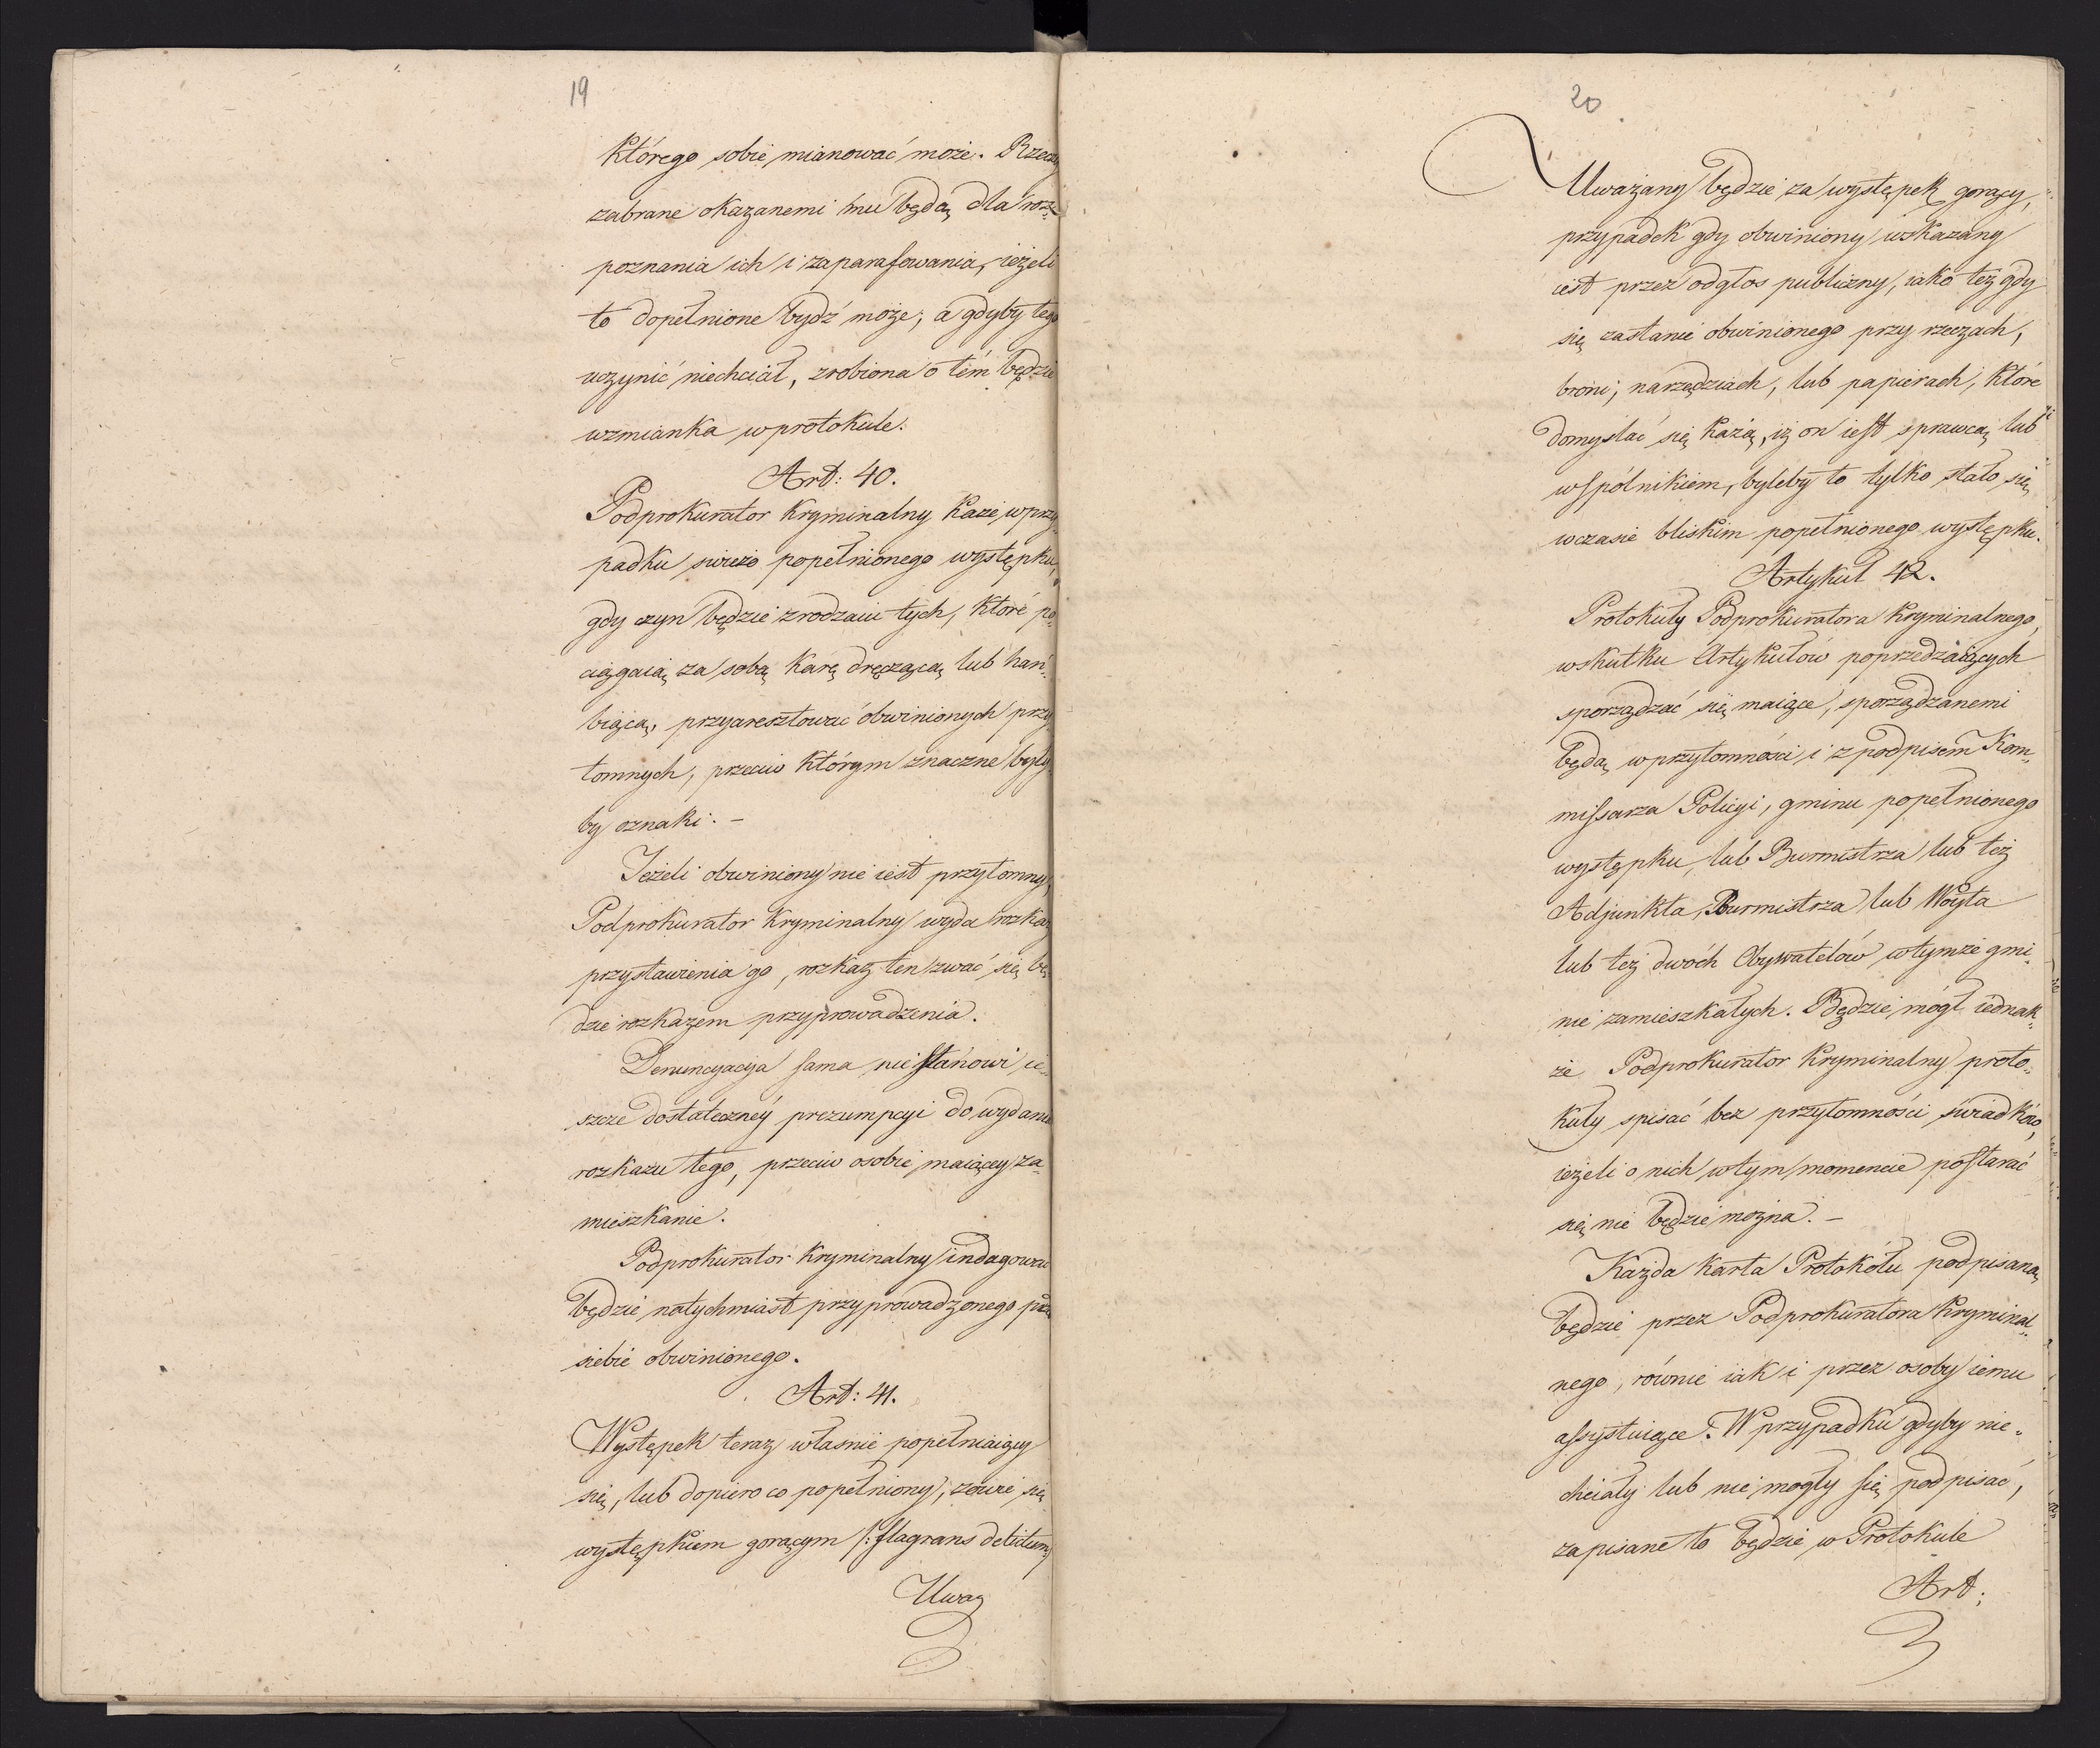 19
którego sobie mianować może. Rzeczy
zabrane okazanemi mu będą dla roz=
poznania ich i zaparafowania, ieżeli
to dopełnione bydź może; a gdyby tego
uczynić niechciał, zrobiona o tém będzie
wzmianka w protokule.
Art: 40.
Podprokurator kryminalny każe w przy=
padku świeżo popełnionego występku,
gdy czyn będzie z rodzaiu tych, które po=
ciągaią za sobą karę dręczącą lub hań=
biącą, przyaresztować obwinionych przy
tomnych, przeciw którym znaczne były
by oznaki. —
Jeżeli obwiniony nie iest przytomny,
Podprokurator kryminalny wyda rozkaz
przystawienia go, rozkaz ten zwać się bę
dzie rozkazem przyprowadzenia.
Denuncyacya sama nie stanowi ie=
szcze dostateczney prezumpcyi do wydania
rozkazu tego, przeciw osobie maiącey za=
mieszkanie.
Podprokurator kryminalny indagować
będzie natychmiast przyprowadzonego przed
siebie obwinionego.
Art: 41.
Występek teraz własnie popełniaiący
się, lub dopiero co popełniony, zowie się
występkiem gorącym /: flagrans delictum
Uważ
20
Uważany będzie za występek gorący,
przypadek gdy obwiniony wskazany
iest przez odgłos publiczny, iako też gdy
się zastanie obwinionego przy rzeczach,
broni, narzędziach, lub papierach, które
domyslać się każą, iż on iest sprawcą lub
wspólnikiem, byleby to tylko stało się
w czasie bliskim popełnionego występku.
Artykuł 42.
Protokuły Podprokuratora kryminalnego,
w skutku Artykułów poprzedzaiących
sporządzać się maiące, sporządzanemi
będą w przytomności i z podpisem Kom=
missarza Policyi, gminu popełnionego
występku, lub Burmistrza lub też
Adjunkta, Burmistrza lub Woyta
lub też dwóch Obywatelów w tymże gmi=
nie zamieszkałych. Będzie mógł iednak=
że Podprokurator Kryminalny proto=
kuły spisać bez przytomności świadków,
ieżeli o nich w tym momencie postarać
się nie będzie można. —
Każda karta Protokółu podpisaną
będzie przez Podprokuratora kryminal=
nego, równie iak i przez osoby iemu
assystuiące. W przypadku gdyby nie=
chciały lub nie mogły się podpisać,
zapisane to będzie w Protokule
Art: